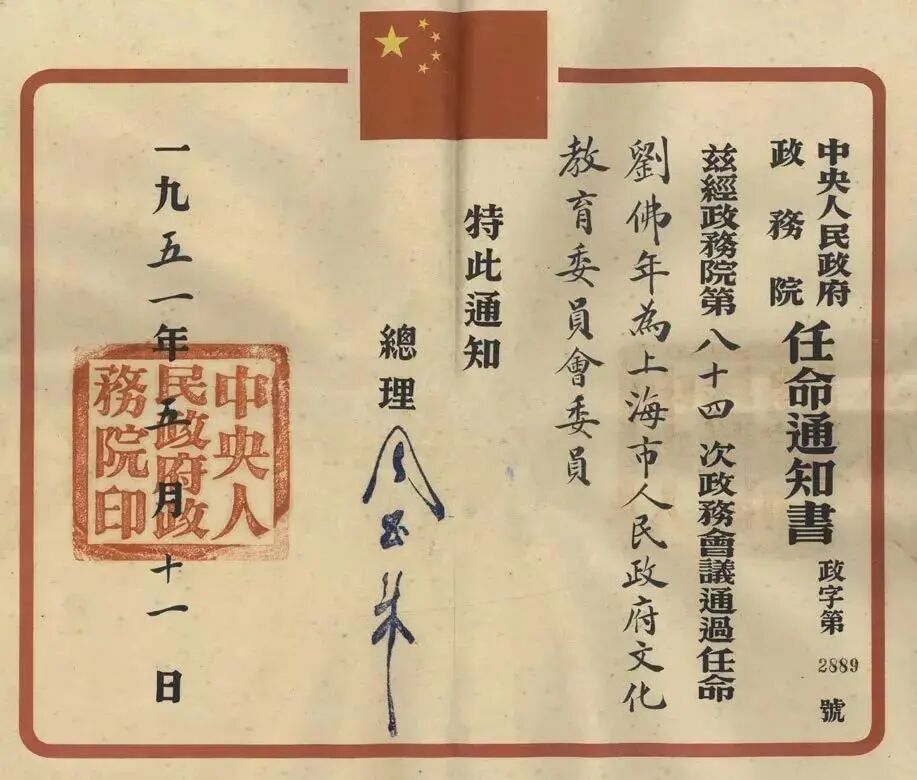 中央人民政府
政務院
任命通知書
政字第2889號
兹經政務院第八十四次政務會議通過任命
劉佛年為上海市人民政府文化
教育委員會委員
特此通知
總理 周恩来
一九五一年五月十一日
中央人民政府政務院印